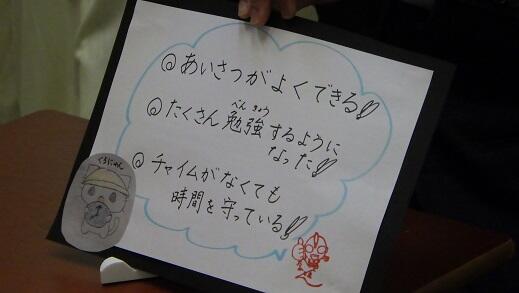 ◎あいさつがよくできる!!
◎たくさん勉強するように
べんきょう
なった!!
◎チャイムがなくても
時間を守っている!!
くろにゃん